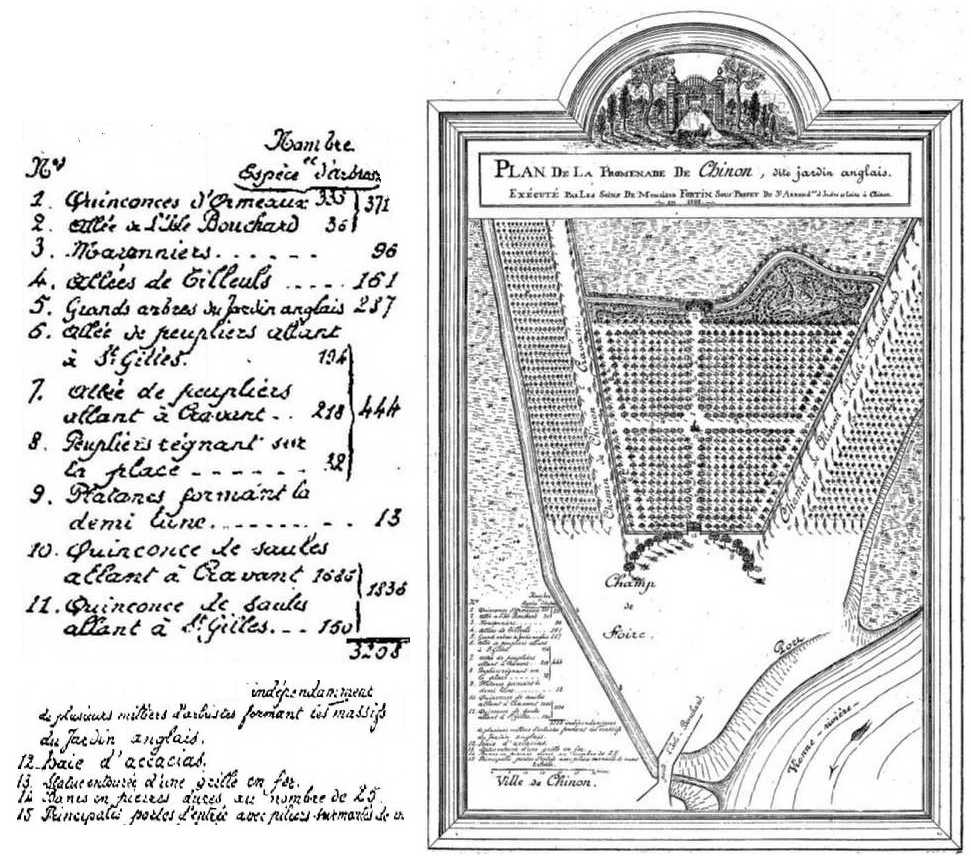 Nos
Nombre
et
Espèce d'arbres
1. Quinconces d'Ormeaux 335 371
2. Allée de L'Isle Bouchard 36
3. Maronniers. . . . . . 96
4. Allées de Tilleuls . . . . . 161
5. Grands arbres du Jardin anglais 287
6. Allée de peupliers allant
à St Gilles. 194
7. Allée de peupliers
allant à Cravant . . 218 444
8. Peupliers régnant sur
la place - - - - - - 32
9. Platanes formant la
demi lune. . - - - - - - . . 13
10. Quinconce de saules
allant à Cravant 1686 1836
11. Quinconce de saules
allant à St Gilles. - - 150
3208
indépendamment
de plusieurs milliers d'arbustes formant les massifs
du Jardin anglais.
12. haie d'accacias.
13. Statue entourée d'une grille en fer.
14. Bancs en pierres dures au nombre de 25.
15 Principales portes d'entrée avec piliers surmontés de
PLAN DE LA PROMENADE DE Chinon, dite jardin anglais.
EXÉCUTÉ PAR LES SOINS DE MONSIEUR FORTIN SOUS PREFET DU
Chemin
Champ
de
Foire.
Port
Vienne rivière
Ville de Chinon.